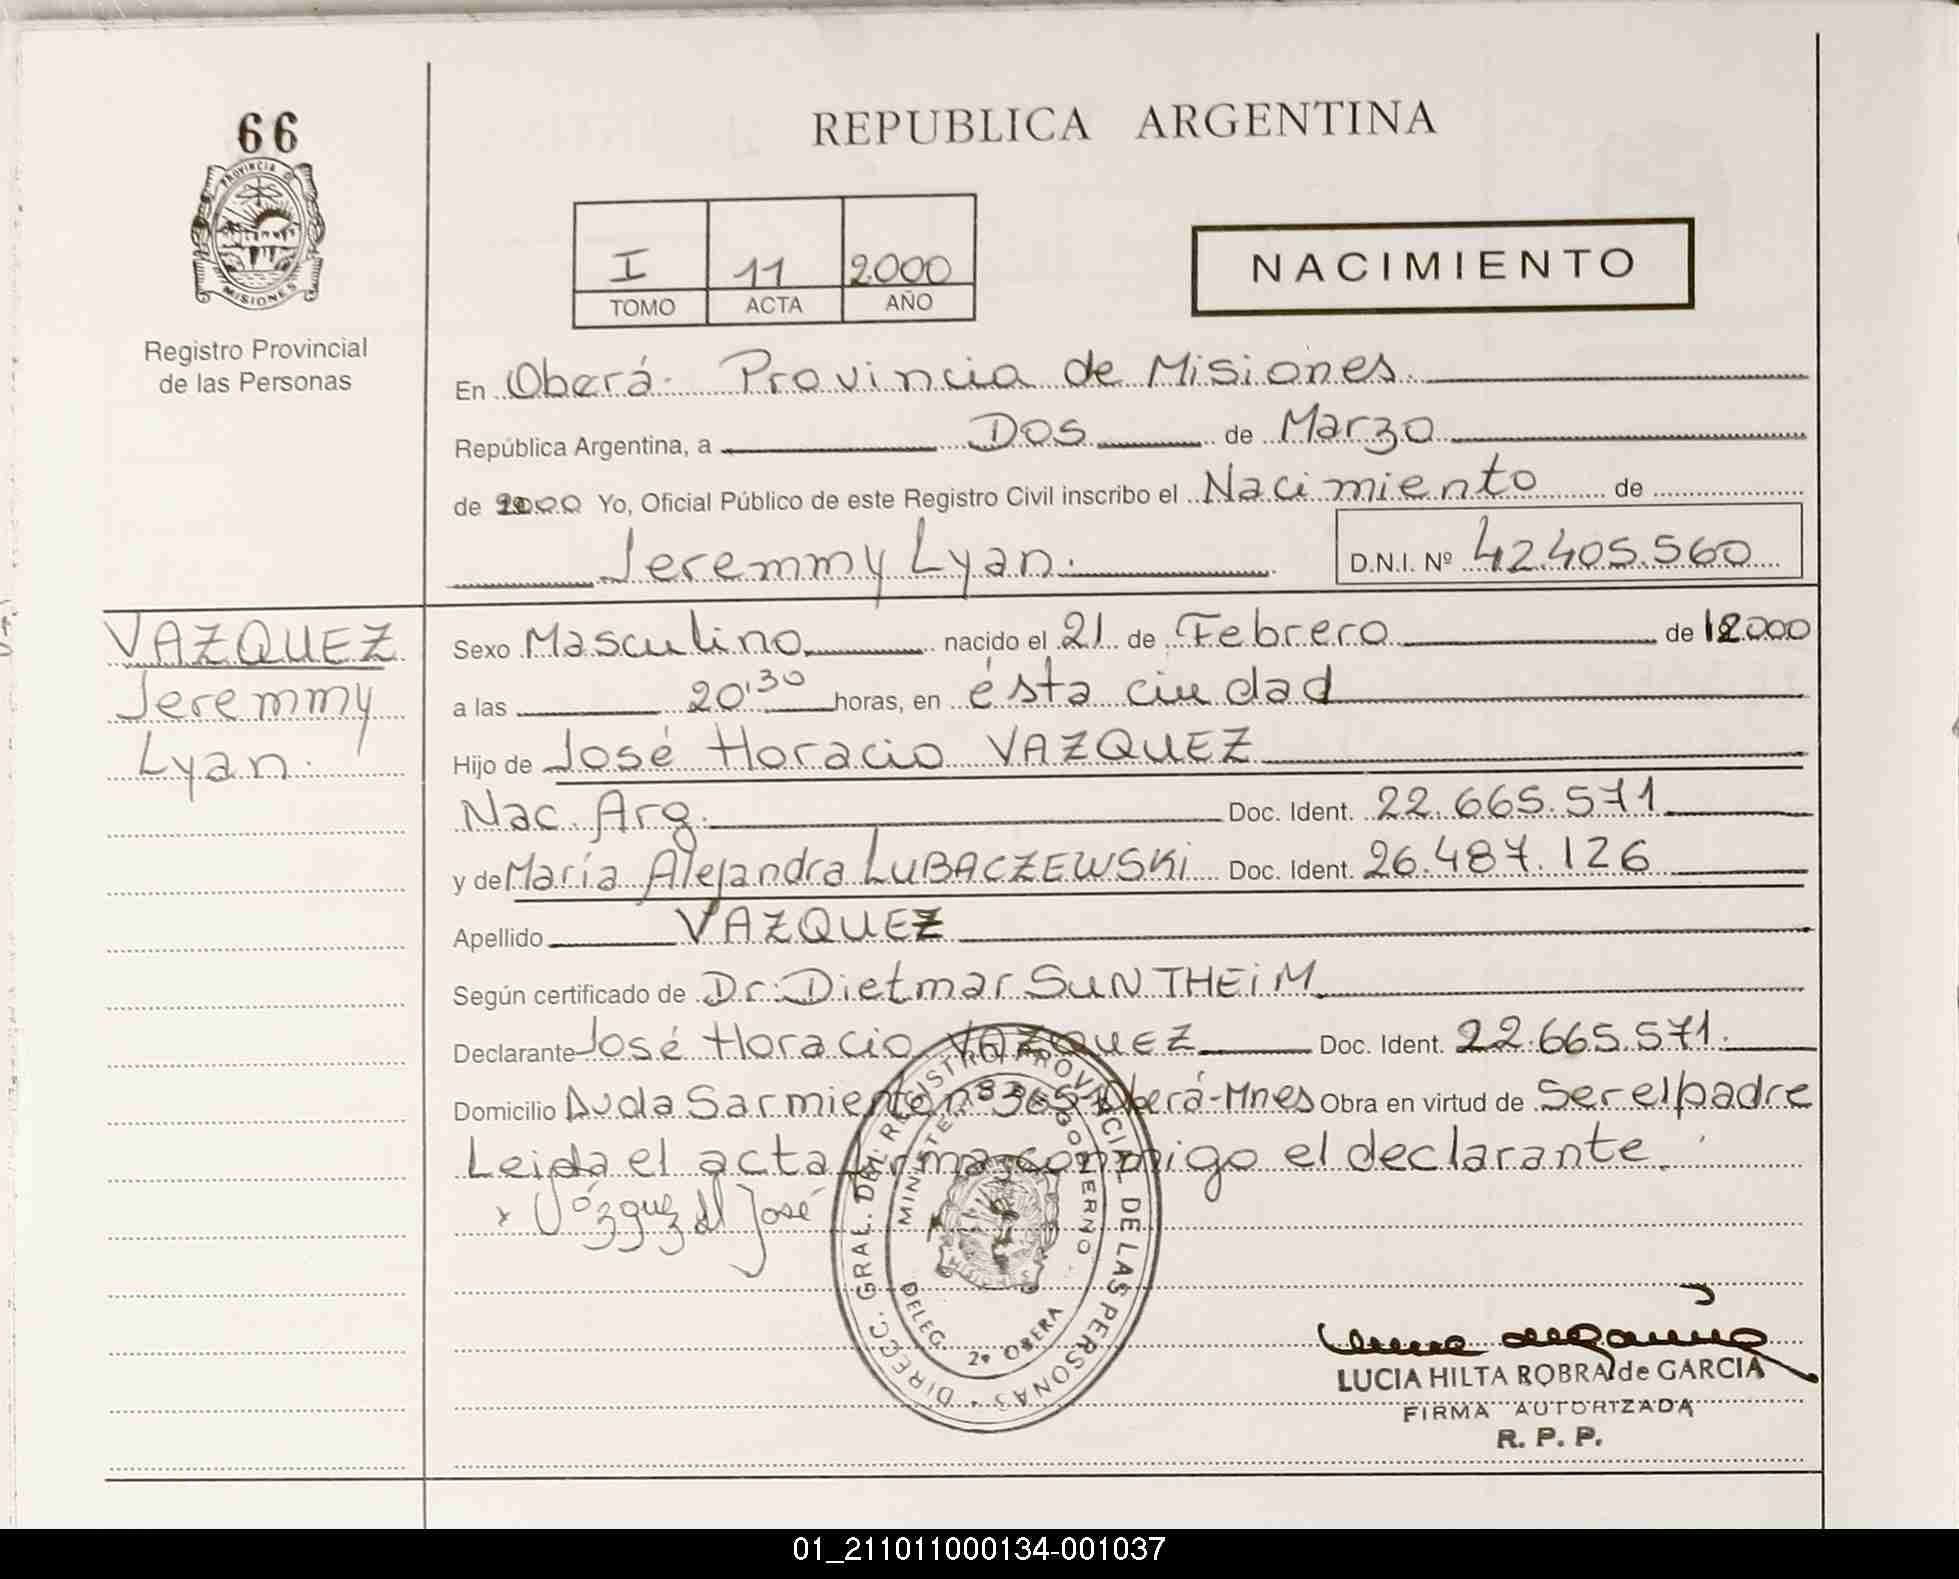 66
PROVINCIA D
MISIONES
Registro Provincial
de las Personas
REPUBLICA ARGENTINA
I 11 2000
TOMO ACTA AÑO
NACIMIENTO
En Oberá. Provincia de Misiones.
República Argentina, a Dos de Marzo
de 2000 Yo, Oficial Público de este Registro Civil inscribo el Nacimiento de
Jeremmy Lyan. D.N.I. Nº 42.405.560
VAZQUEZ
Jeremmy
Lyan.
Sexo Masculino nacido el 21 de Febrero de 2000
a las 20'30 horas, en ésta ciudad
Hijo de José Horacio VAZQUEZ
Nac. Arg. Doc. Ident. 22.665.571
y de María Alejandra LUBACZEWSKi Doc. Ident. 26.487.126
Apellido VAZQUEZ
Según certificado de Dr. Dietmar SUNTHEiM
Declarante José Horacio VAZQUEZ Doc. Ident. 22.665.571.
Domicilio Avda Sarmiento nº 365 Oberá-Mnes Obra en virtud de Ser el padre
Leida el acta firma conmigo el declarante.
x Vázquez José
DIRECC. GRAL. DEL REGISTRO PROVINCIAL DE LAS PERSONAS
MINISTERIO GOBIERNO
DELEG. 2ª OBERA
LUCIA HILTA ROBRA de GARCIA
FIRMA AUTORIZADA
R. P. P.
01_211011000134-001037